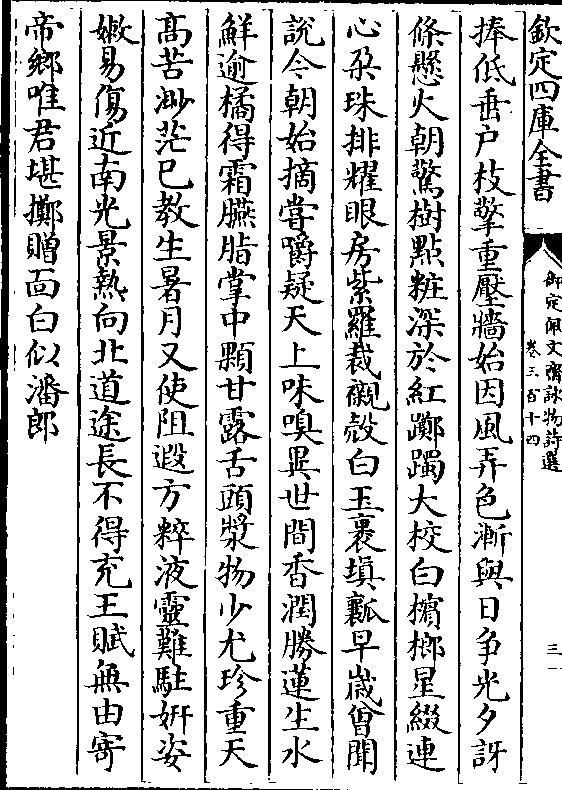 欽定四庫全書
御定佩文齋詠物詩選
卷三百十四
三
捧低垂户枝擎重壓牆始因風弄色漸與日争光夕訝
條懸火朝驚樹點粧深於紅躑躅大校白檳榔星綴連
心朶珠排耀眼房紫羅裁襯殻白玉裹填瓤早嵗曾聞
説今朝始摘嘗嚼疑天上味嗅異世間香潤勝蓮生水
鮮逾橘得霜臙脂掌中顆甘露舌頭漿物少尤珍重天
髙苦渺茫已教生暑月又使阻遐方粹液靈難駐妍姿
嫩易傷近南光景熱向北道途長不得充王賦無由寄
帝鄉唯君堪擲贈面白似潘郎